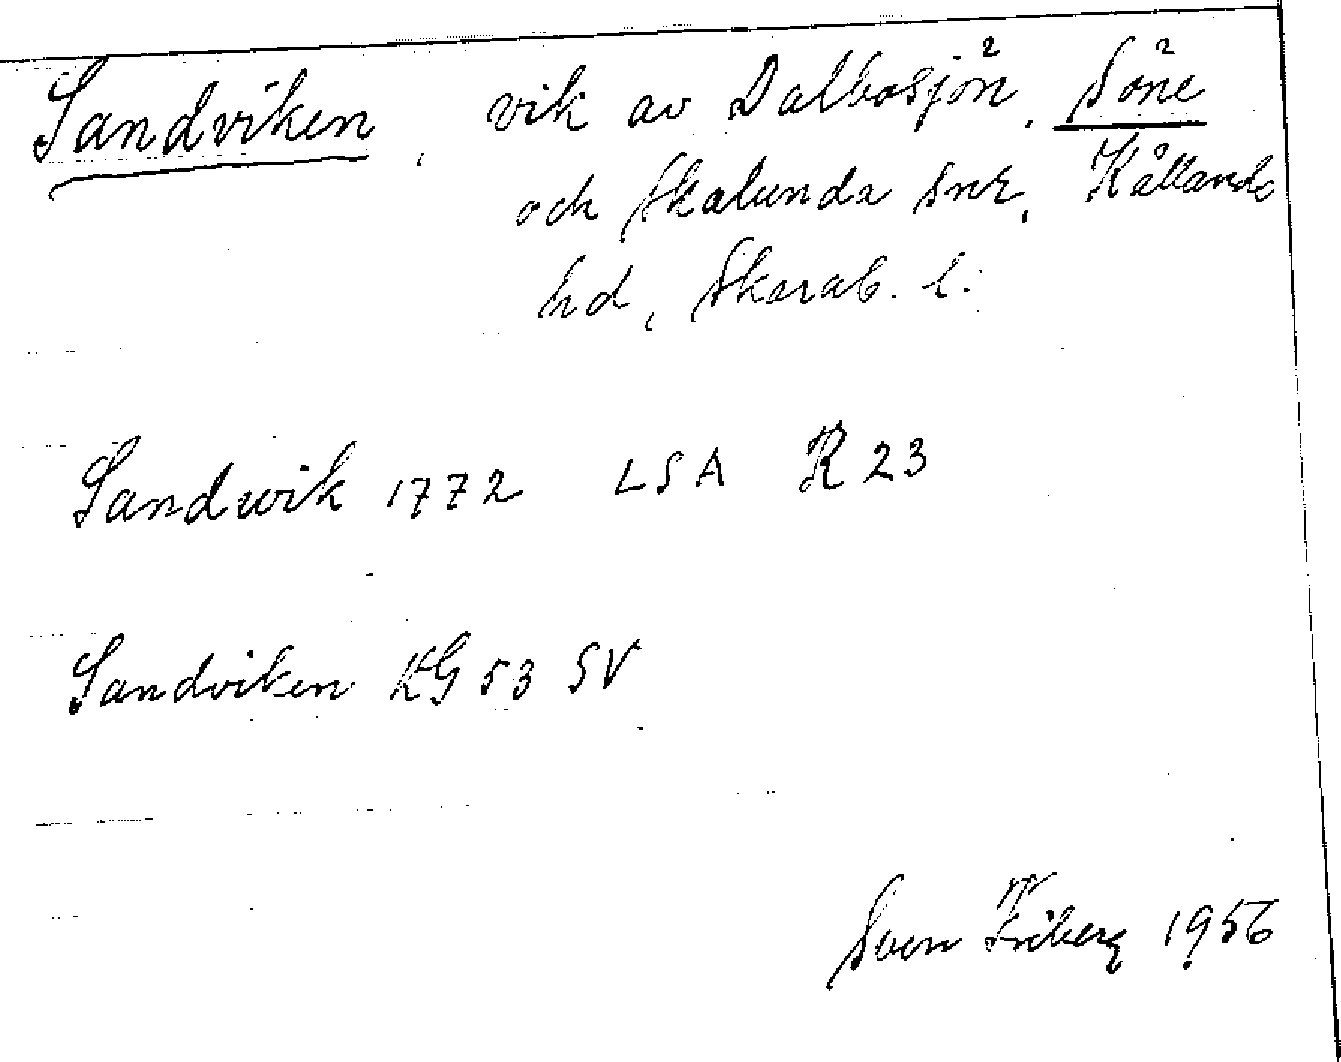 Sandviken, vik av Dalbosjön, Söne
och Skalunda snr, Kållands
hd, Skarab. l.
Sandwik 1772 LSA R 23
Sandviken KG 53 SV
Sven Friberg 1956